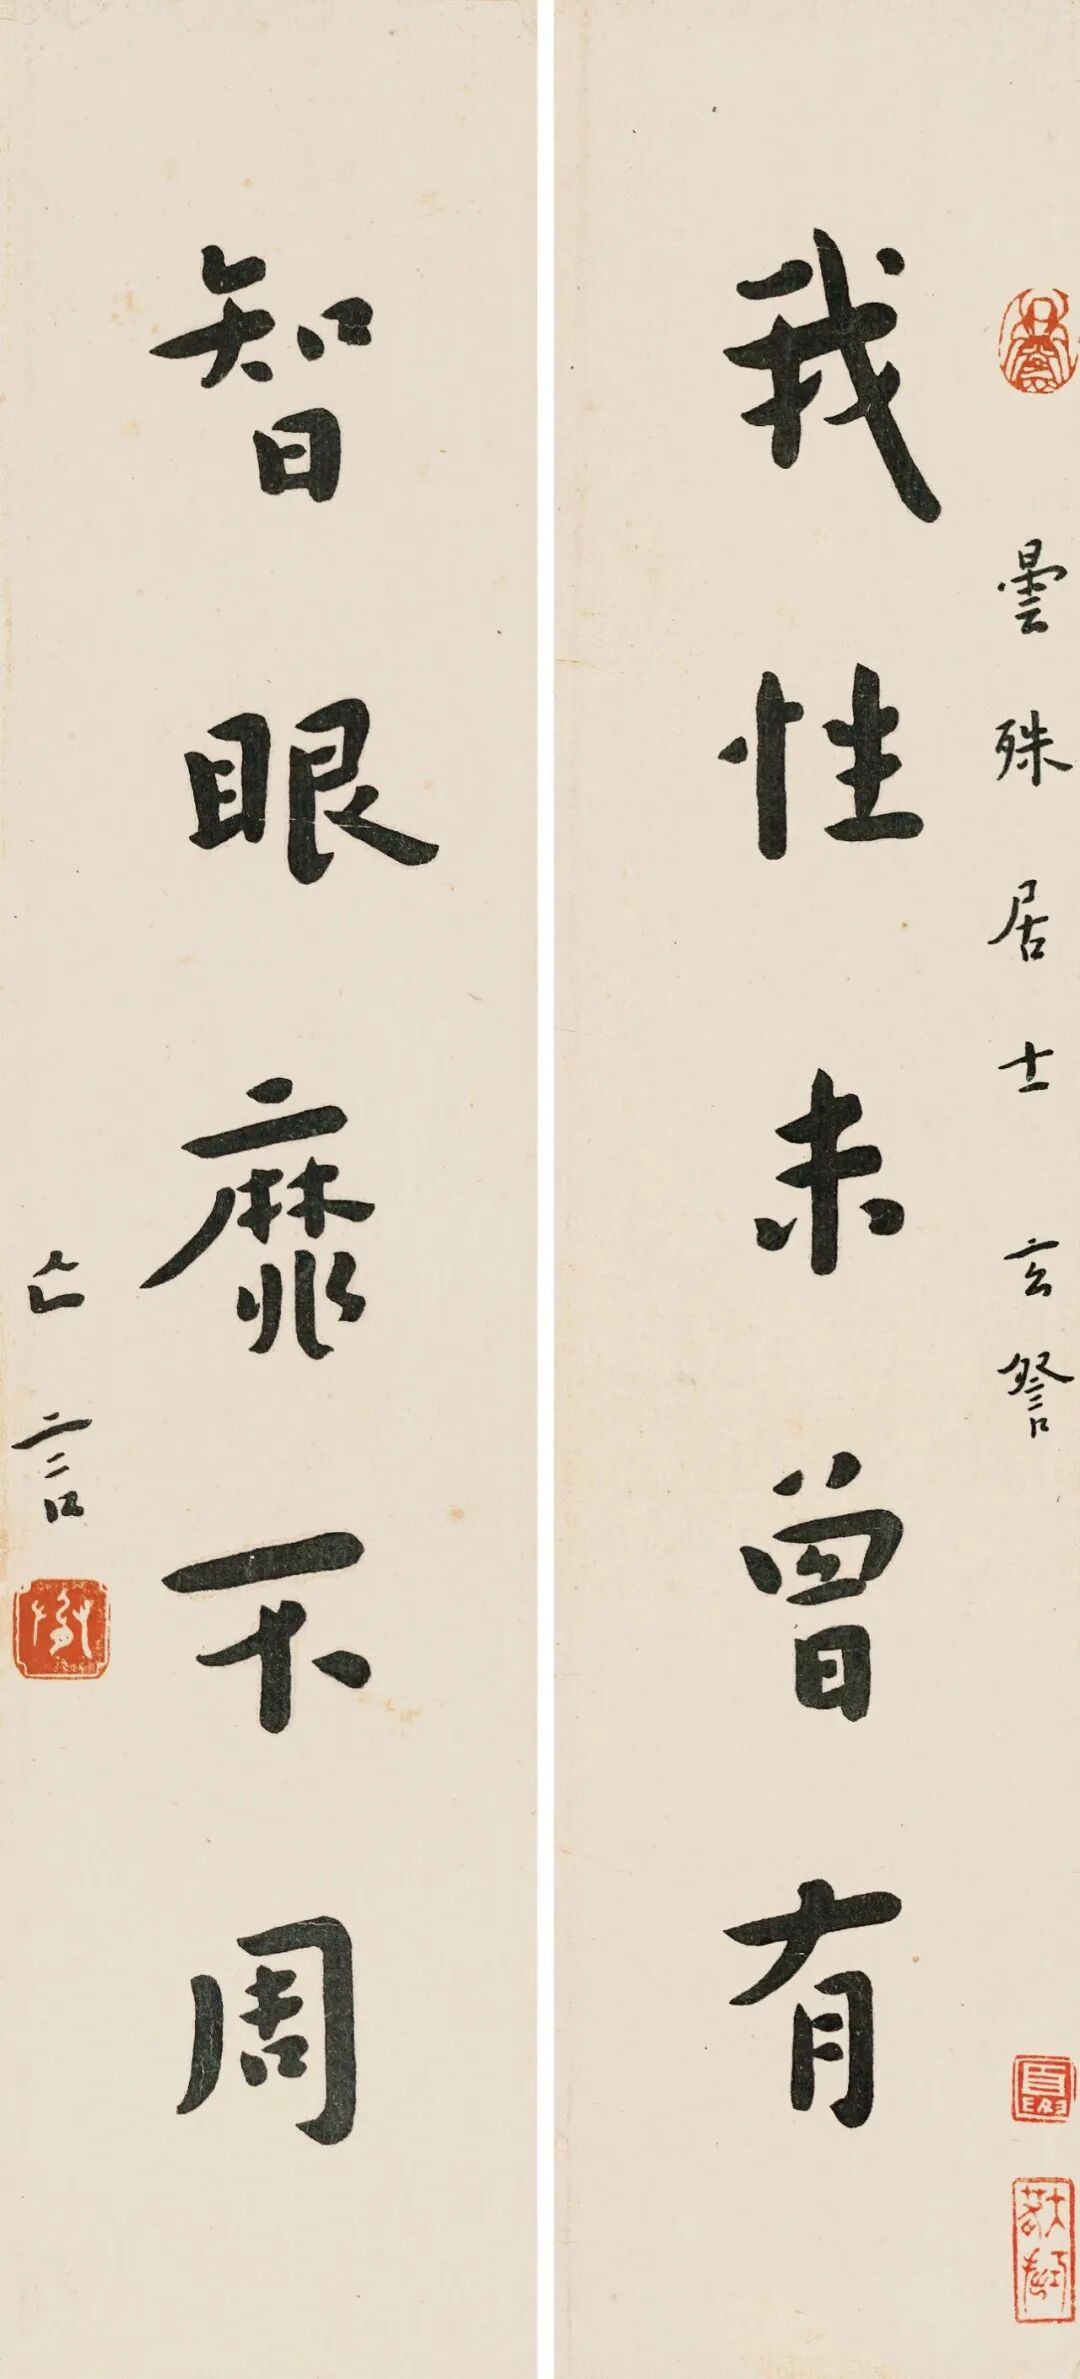 曇殊居士 玄詧
我性未曾有
智眼靡不周
亡言